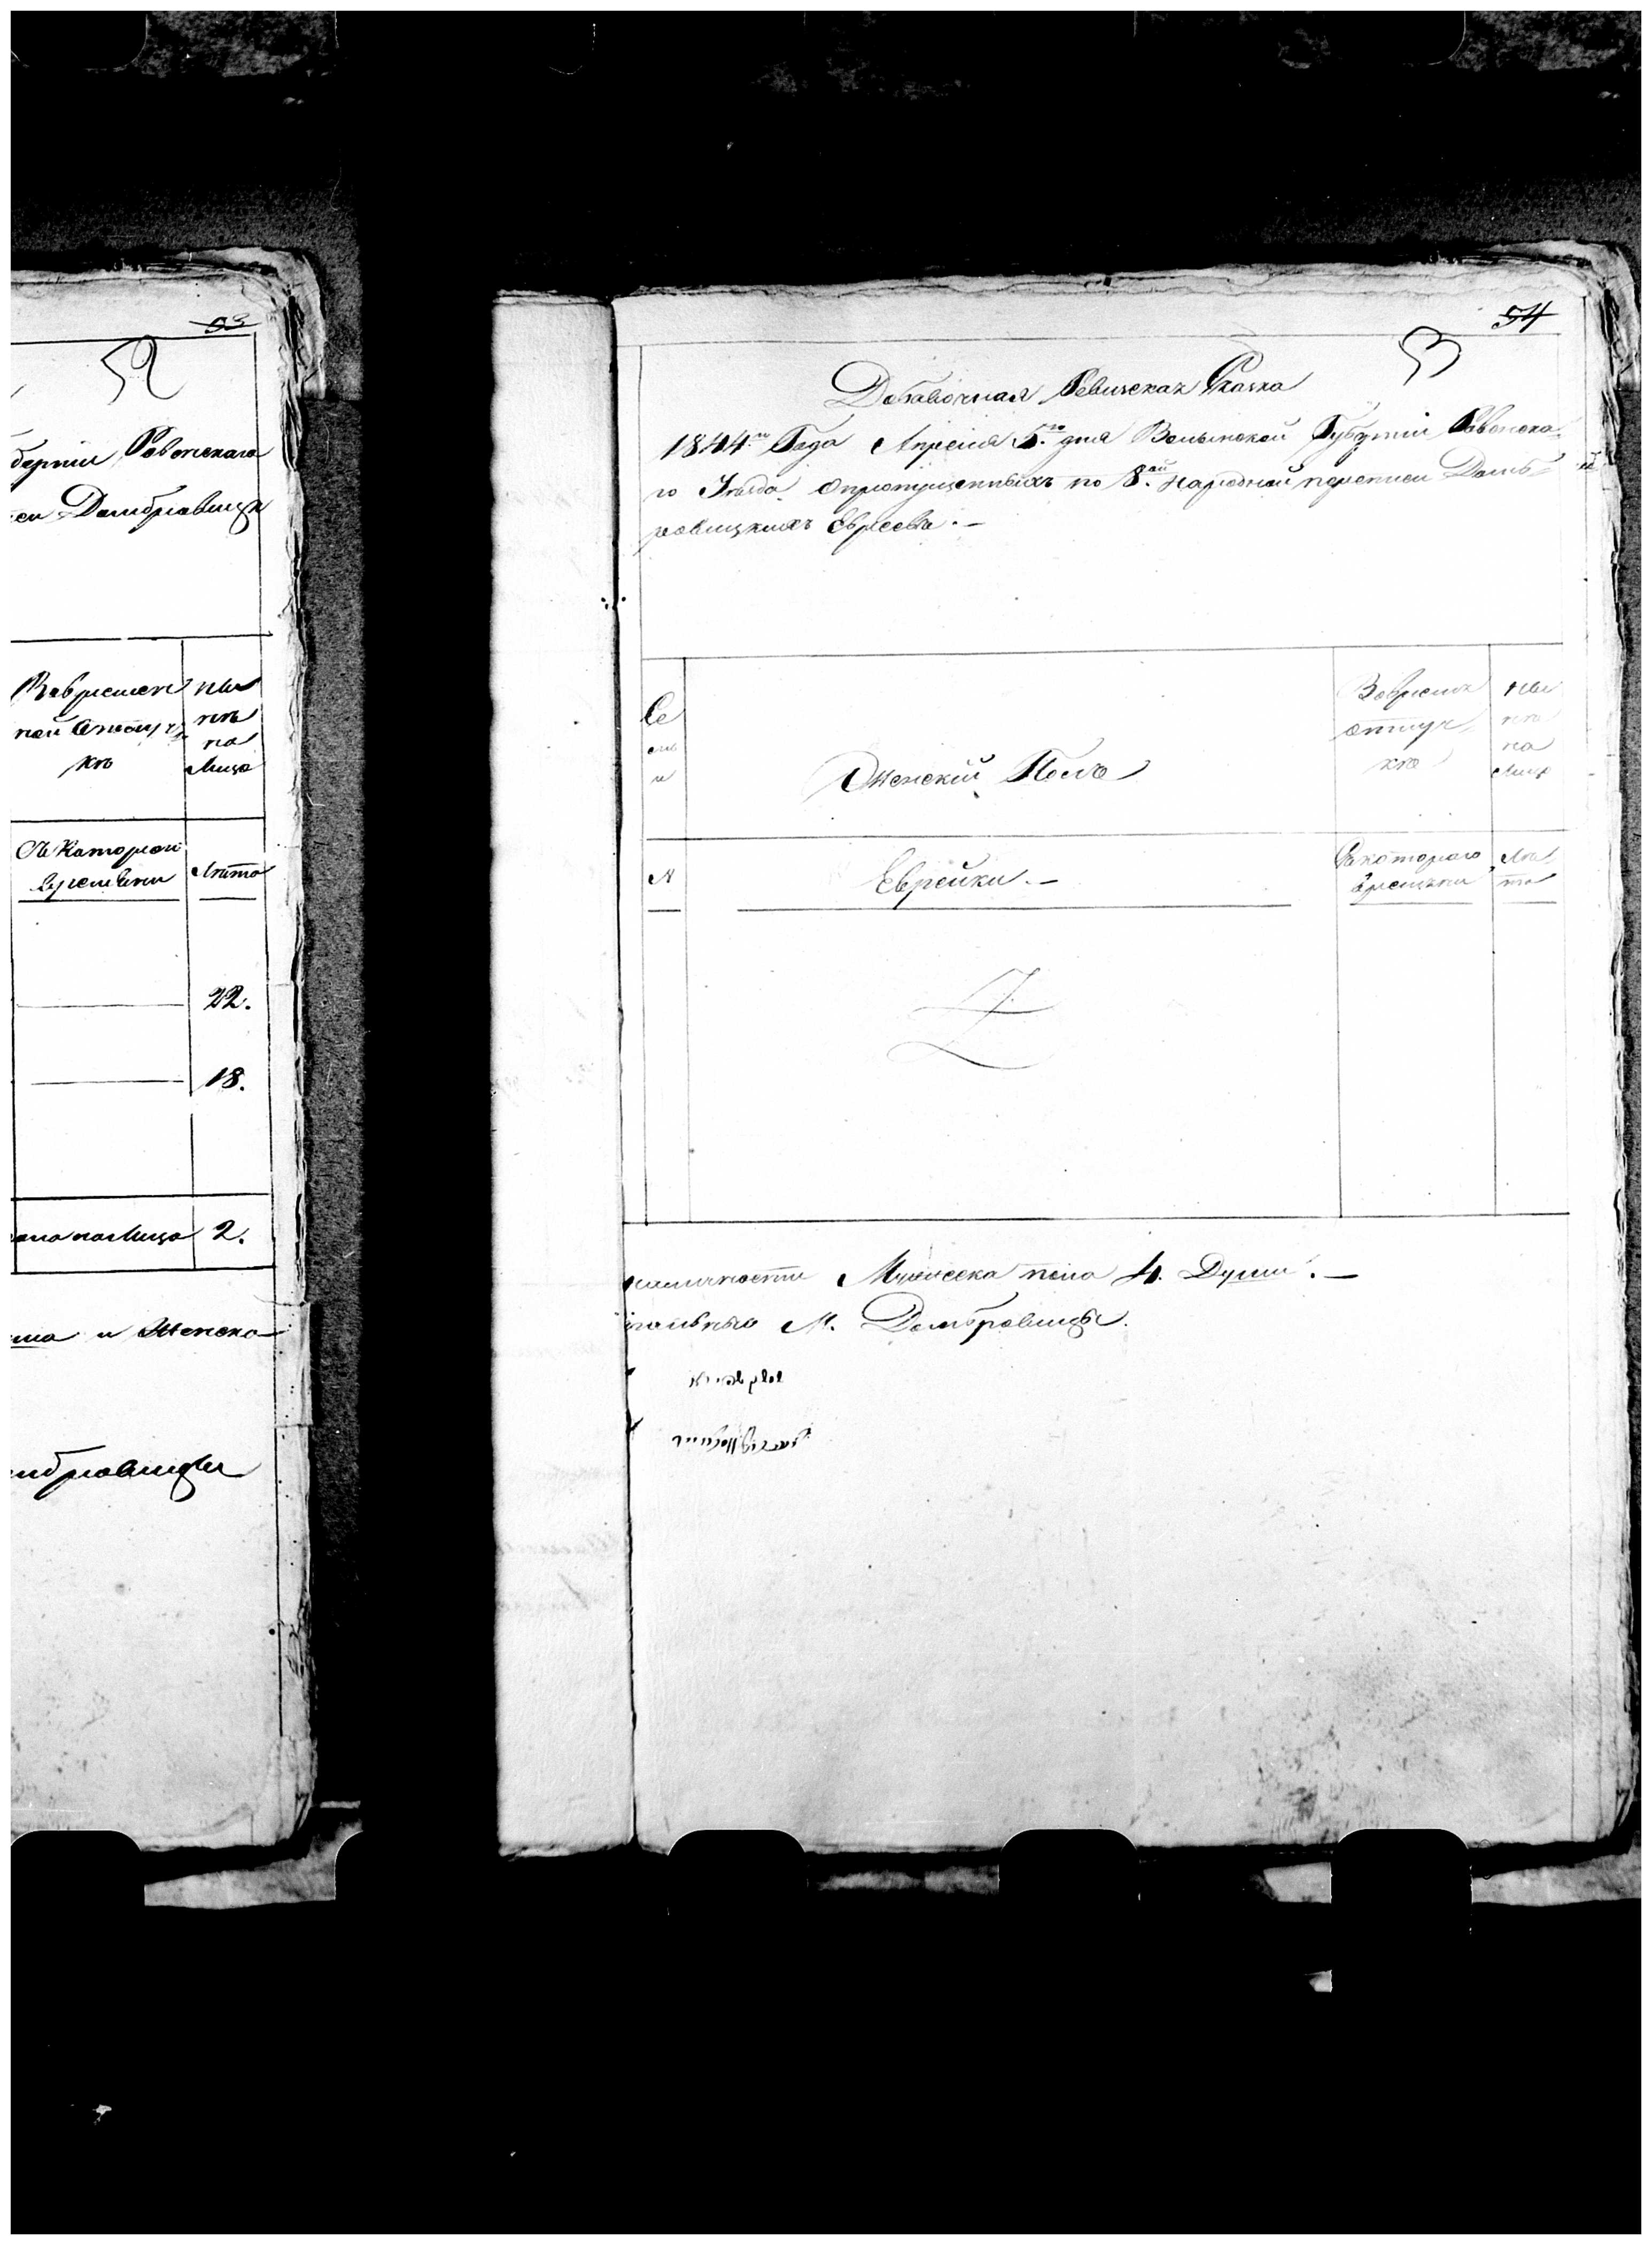 53
52
берніи Ровенскаго
еи Домбровицк
Вовремен
ной отлуч
кѣ
ны
нѣ
на
лицо
Съ которои
времени
Лѣта
22.
18.
на лицо 2.
и Женска
мбровицы
54
53
Добавочная Ревизская Сказка
1844го Года Апреля 5.го дня Волынской Губерніи Ровенска
го Уезда опропущенныхъ по 8.ай народной переписи Домб
ровицкихъ Евреевъ.-
Се
мь
и
Женскій Полъ
Вовремя
отлуч
кѣ
ны
нѣ
на
лицо
№
Еврейки.-
Скотораго
времени
Лѣ
та
наличности Мужеска пола 4. Души.-
М. Домбровицы.